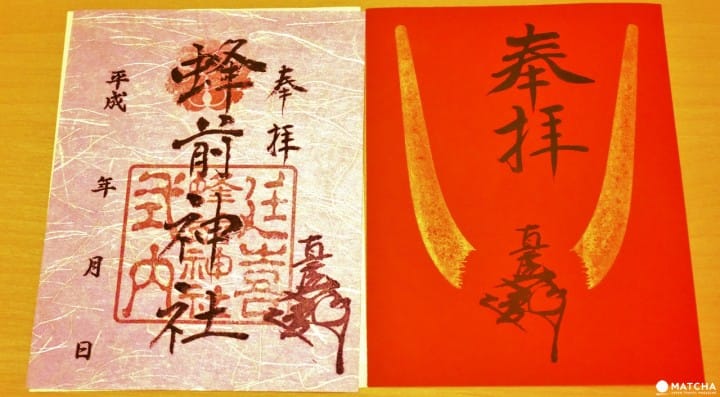 奉拝
蜂前神社
平成 年 月 日
延喜
式内
奉拝
MATCHA